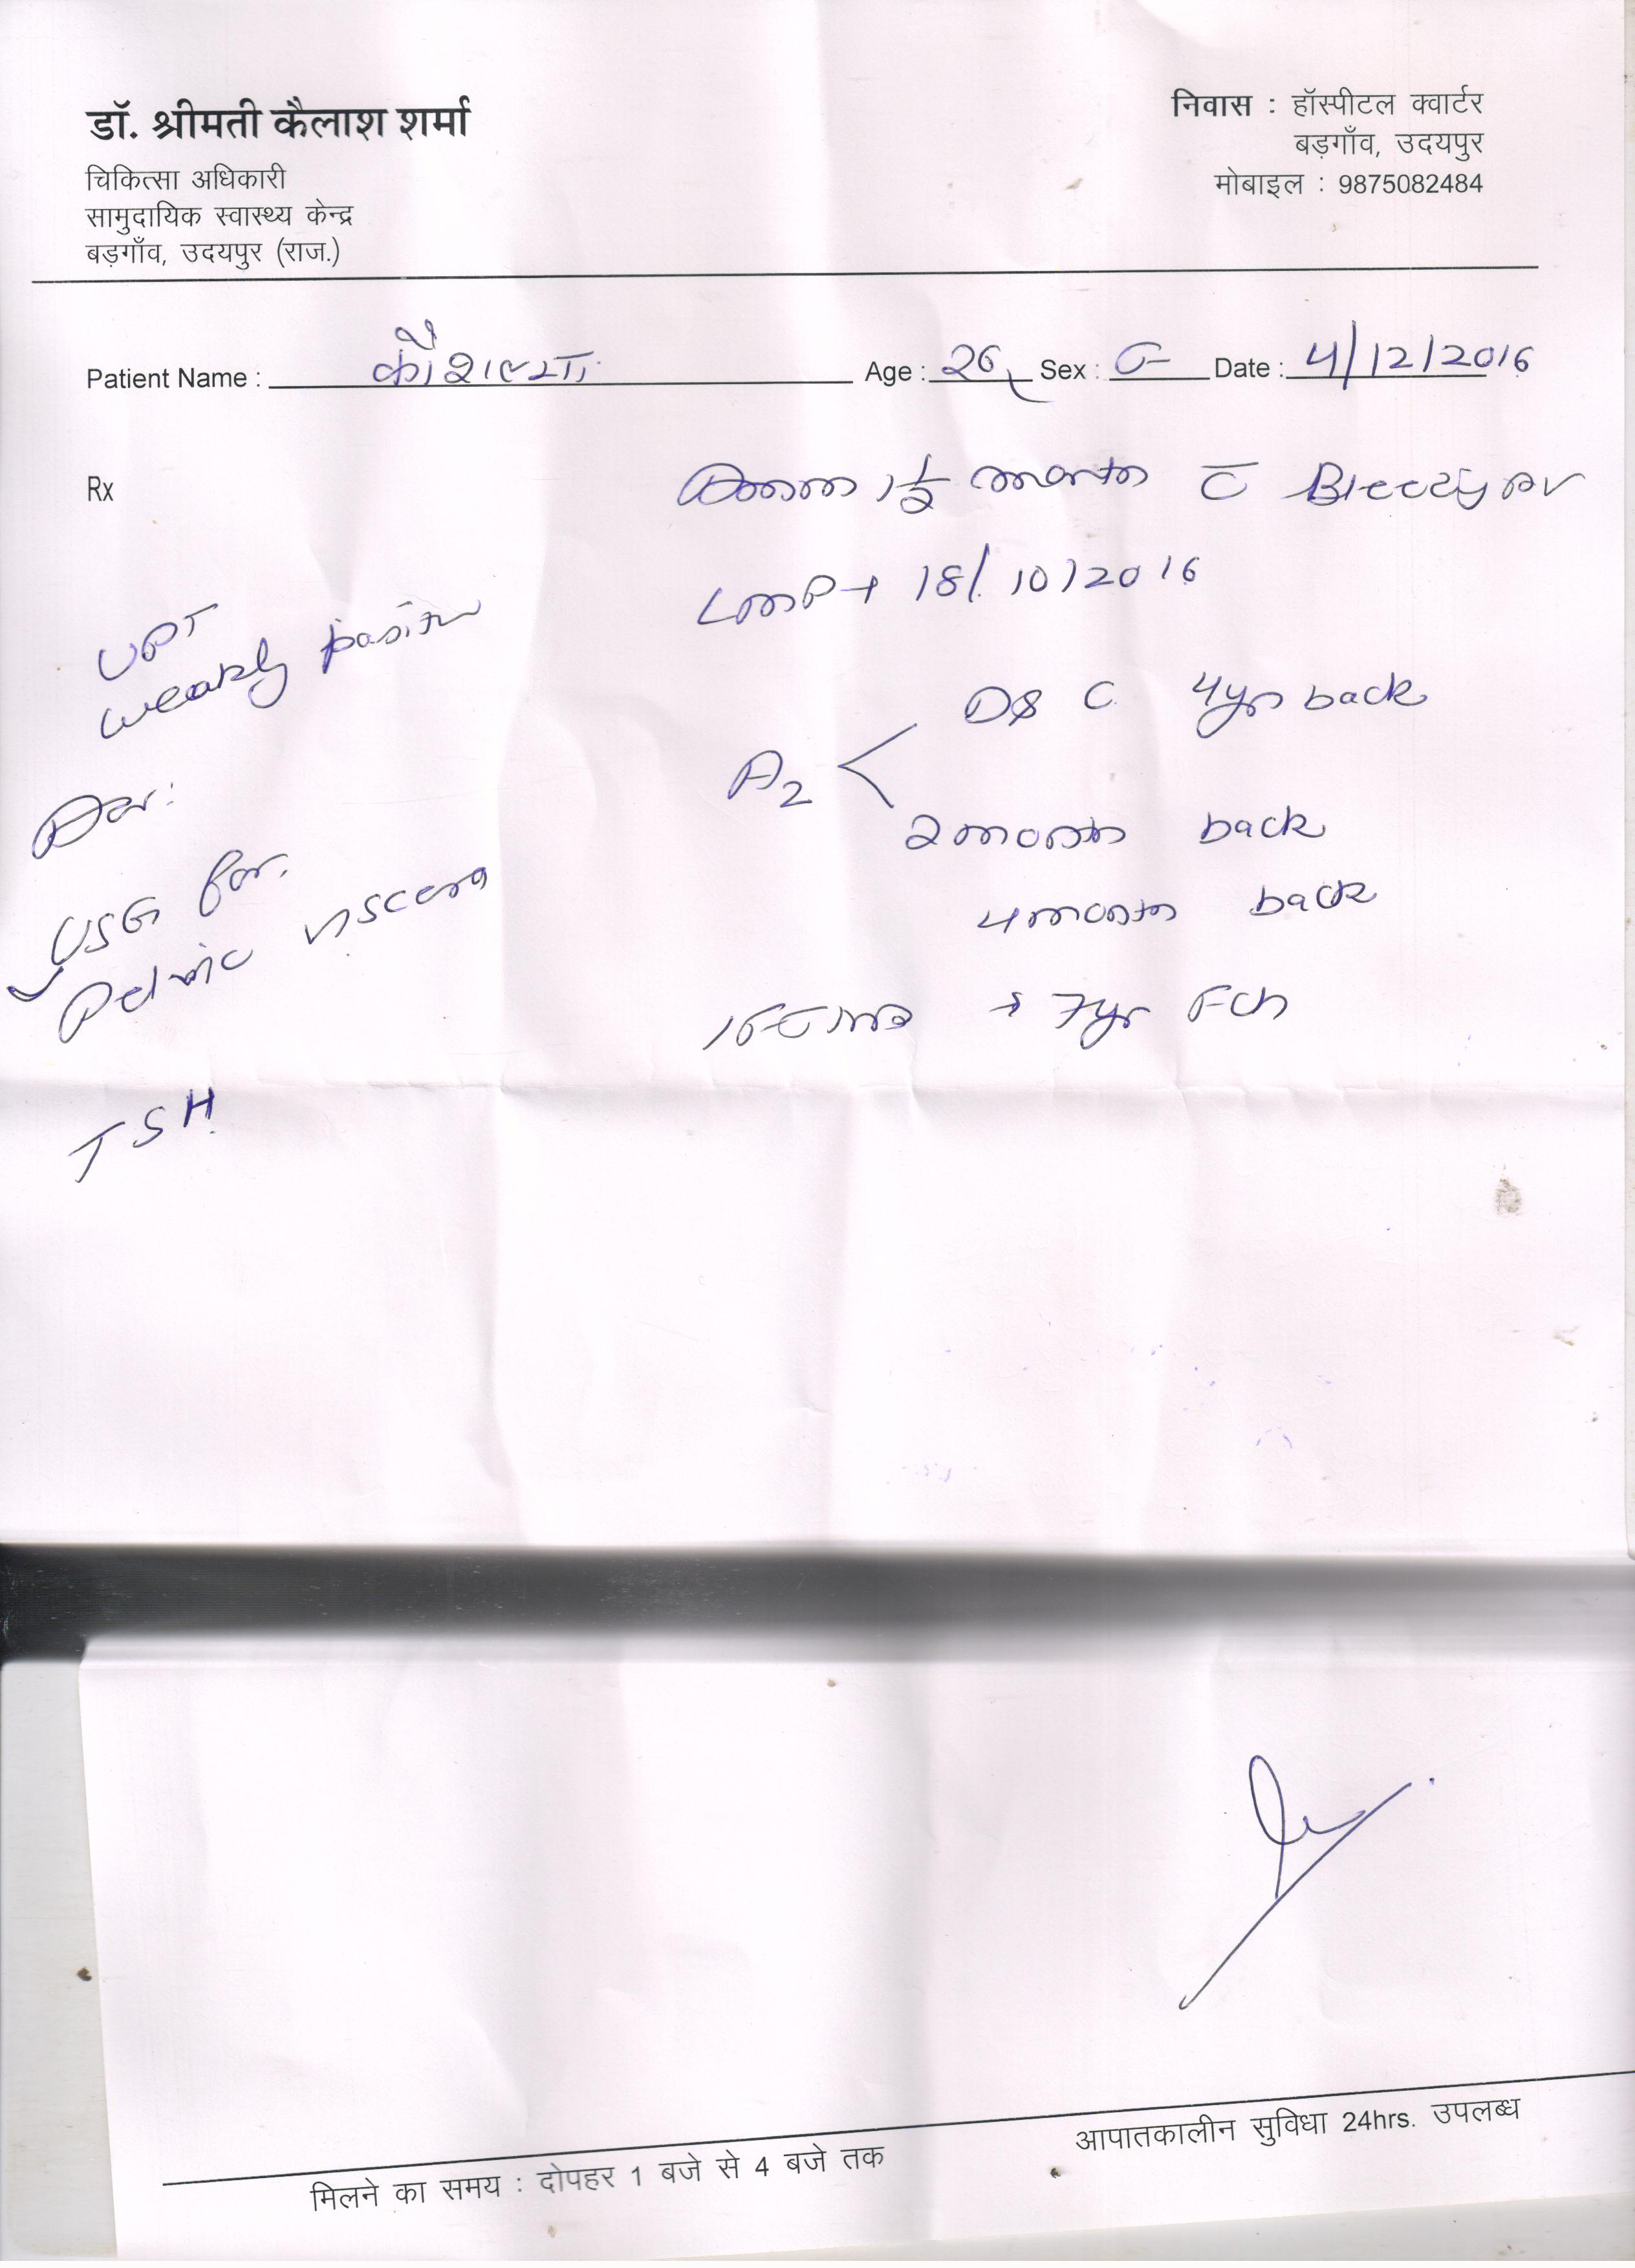 डॉ. श्रीमती कैलाश शर्मा
चिकित्सा अधिकारी
सामुदायिक स्वास्थ्य केन्द्र
बड़गाँव, उदयपुर (राज.)
निवास : हॉस्पीटल क्वार्टर
बड़गाँव, उदयपुर
मोबाइल : 9875082484
Patient Name : कौशल्या Age : 26 Sex : F Date : 4/12/2016
Rx
1 1/2 month c̄ Bleeding PV
LMP → 18/10/2016
UPT
weakly positive
D & C 4yr back
A2
2 month back
4 month back
Adv:
USG for.
Pelvic viscera
→ 7yr FCh
TSH
मिलने का समय : दोपहर 1 बजे से 4 बजे तक
आपातकालीन सुविधा 24hrs. उपलब्ध